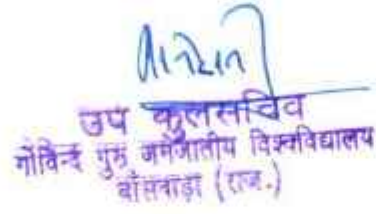 उप कुलसचिव
गोविन्द गुरू जनजातीय विश्वविद्यालय
बाँसवाड़ा (राज.)